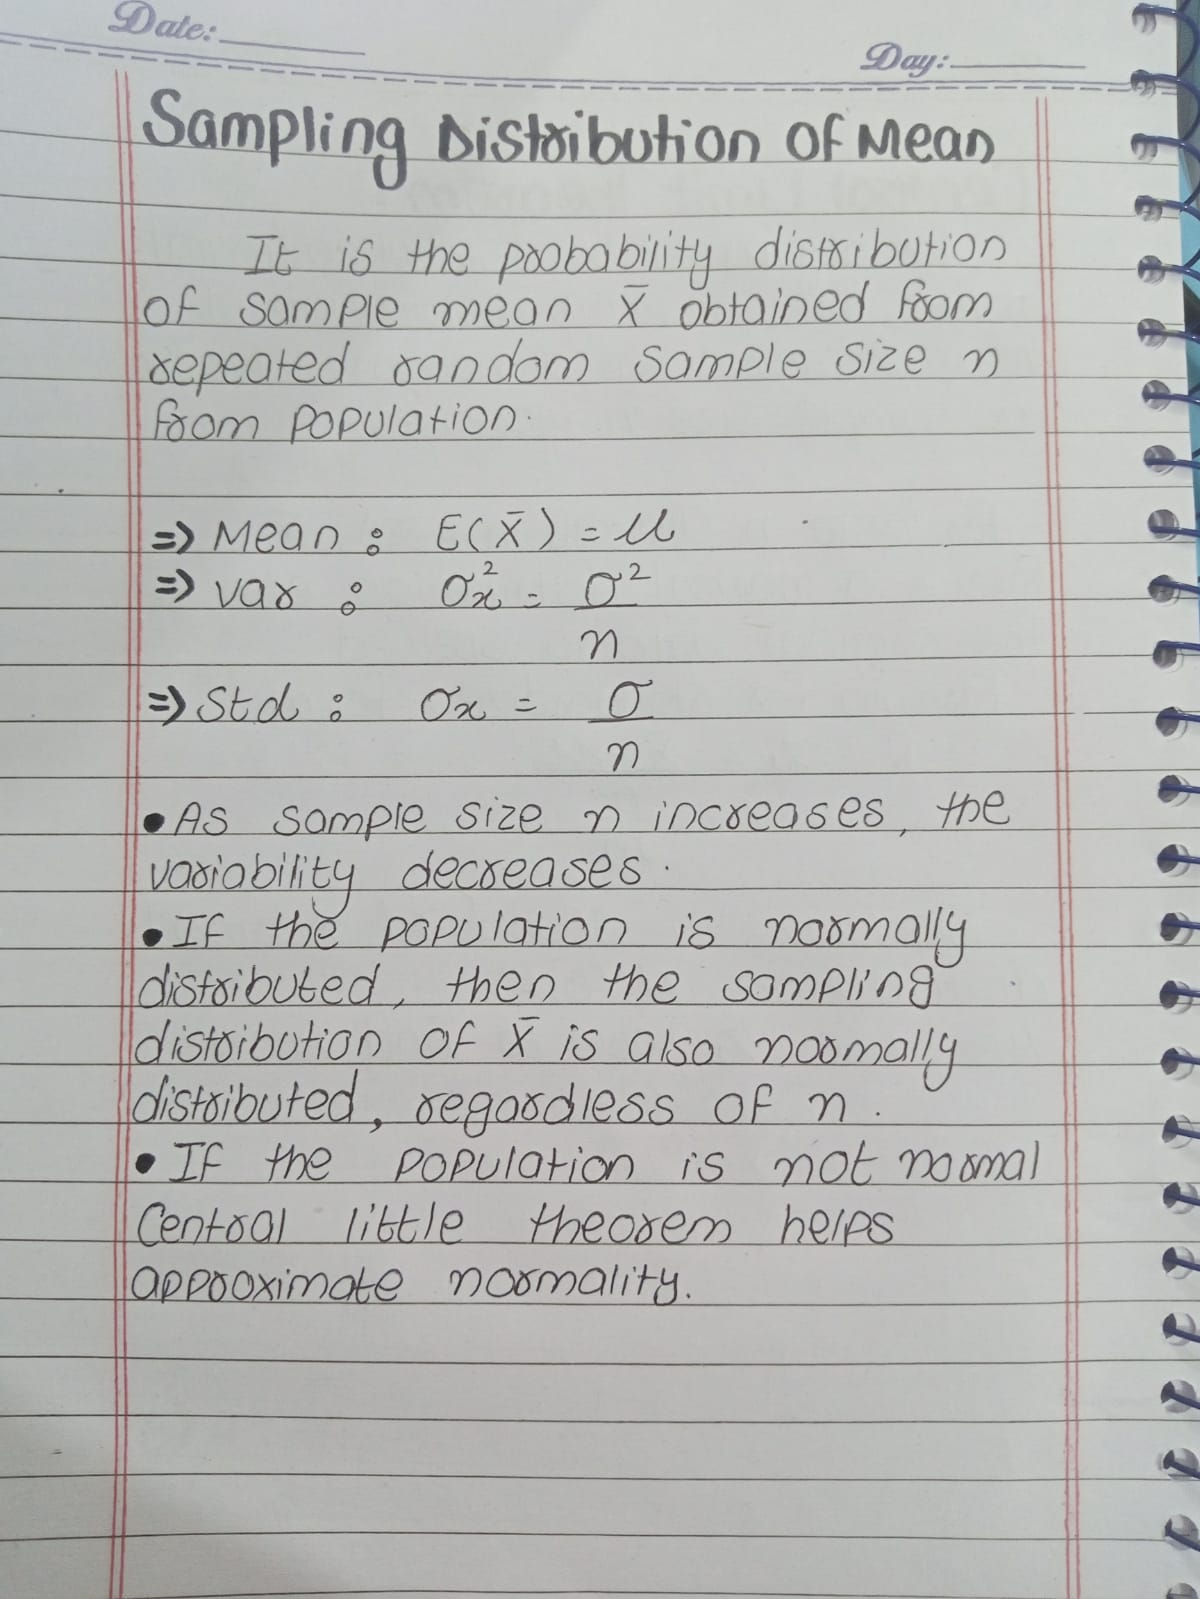 Date:
Day:
Sampling Distribution Of Mean
It is the probability distribution
of sample mean x̄ obtained from
repeated random sample size n
from population.
=> Mean : E(x̄) = μ
=> var : σx̄² = σ²/n
=> Std : σx = σ/n
• As sample size n increases, the
variability decreases.
• If the population is normally
distributed, then the sampling
distribution of x̄ is also normally
distributed, regardless of n.
• If the population is not normal
Central little theorem helps
approximate normality.